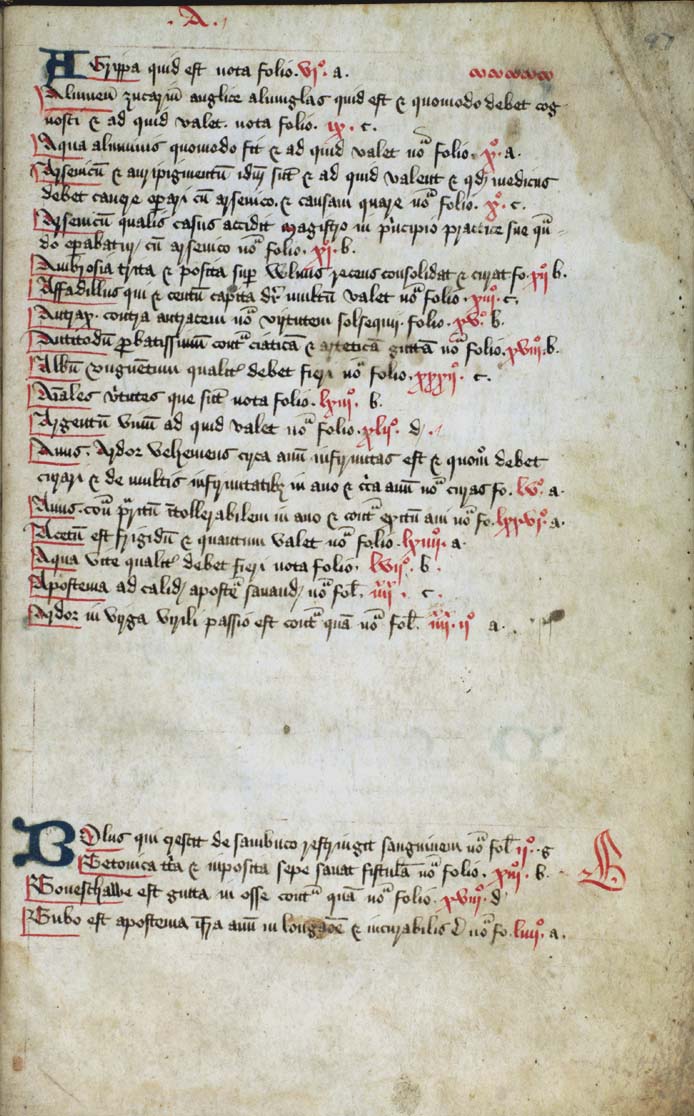 .A.
AGrippa quid est nota folio . vjº . a .
Alumen zucarinū anglice alumglas quid est ⁊ quomodo debet cog
nosci ⁊ ad quid valet . nota folio . ix . c .
Aqua aluminis quomodo fit ⁊ ad quid valet noª folio . xº . a .
Arsenicū ⁊ auripigmentū idm̄ sūt ⁊ ad quid valent ⁊ qd̛ medicus
debet cauere opari cū arsenico . ⁊ causam quare noª folio . xº . c .
Arsenicū qualis casus accidit magistro in pͥncipio practice sue qūͣ
do opabatur cū arsenico noª folio . xj . b .
Ambrosia trita ⁊ posita sup vulnus recens consolidat ⁊ curat fo . xij b .
Affadillus qui ⁊ centū capita dr̄ multū valet noª folio . xiijº . c .
Antrax . contra antracem noª virtutem solsequij . folio . xvº . b .
Antitodū pbatissimum contª ciaticā ⁊ arteticā guttā noª folio . xviijº . b .
Albū vnguentum qualitˀ debet fieri noª folio . xxxijº . c .
Aīales vͥtutes que sūt nota folio . lxiijº . b .
Argentū viuū ad quid valet noª folio . xlijº . d .
Anus . Ardor vehemens circa anū infirmitas est ⁊ quomº debet
curari ⁊ de multis infirmitatibꝫ in ano ⁊ cͥca anū noª curas fo . lvº . a .
Anus . contª pͥritū ītollerabilem in ano ⁊ contª exitū ani noª fo . lxxvjº . a .
Acetū est frigidū ⁊ quantum valet noª folio . lxiiijº . a .
Aqua vite qualitˀ debet fieri nota folio . lvijº . b .
Apostema ad calid̛ apostēª sanand̛ noª fol̄ . iiijˣˣ . c .
Ardor in virga virili passio est contª quā noª fol̄ . iiijˣˣ . ijº a .
BOlus qui crescit de sambuco restringit sanguinem noª fol̄ ijº . g
Betonica tͥta ⁊ inposita sepe sanat fistulā noª folio . xiijº . b .
B
Boneschawe est gutta in osse contª quā noª folio . xviijº . d
Bubo est apostema īfra anū in longaōe ⁊ incurabilis noª fo . liiijº . a .